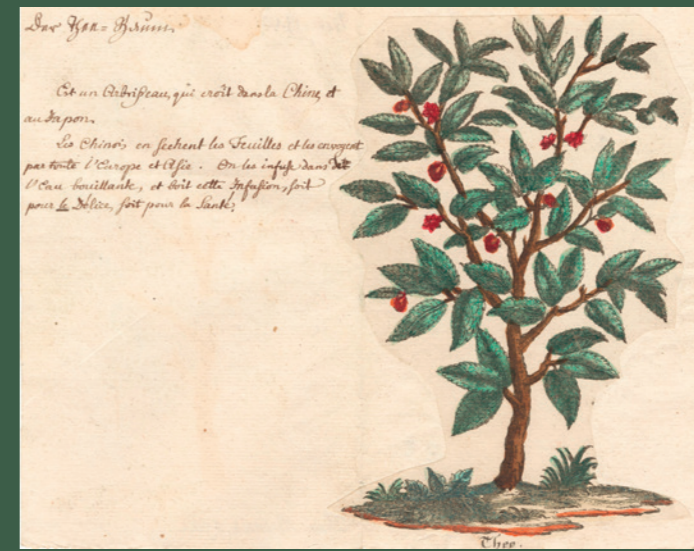 Der Thee-Baum.
Est un Arbrisseau, qui croît dans la Chine, et
au Japon.
Les Chinois en sechent les Feuilles et les envoyent
par toute l'Europe et Asie. On les infuse dans de
l'Eau bouillante, et boit cette Infusion, soit
pour le Délice, soit pour la Santé.
Thee.